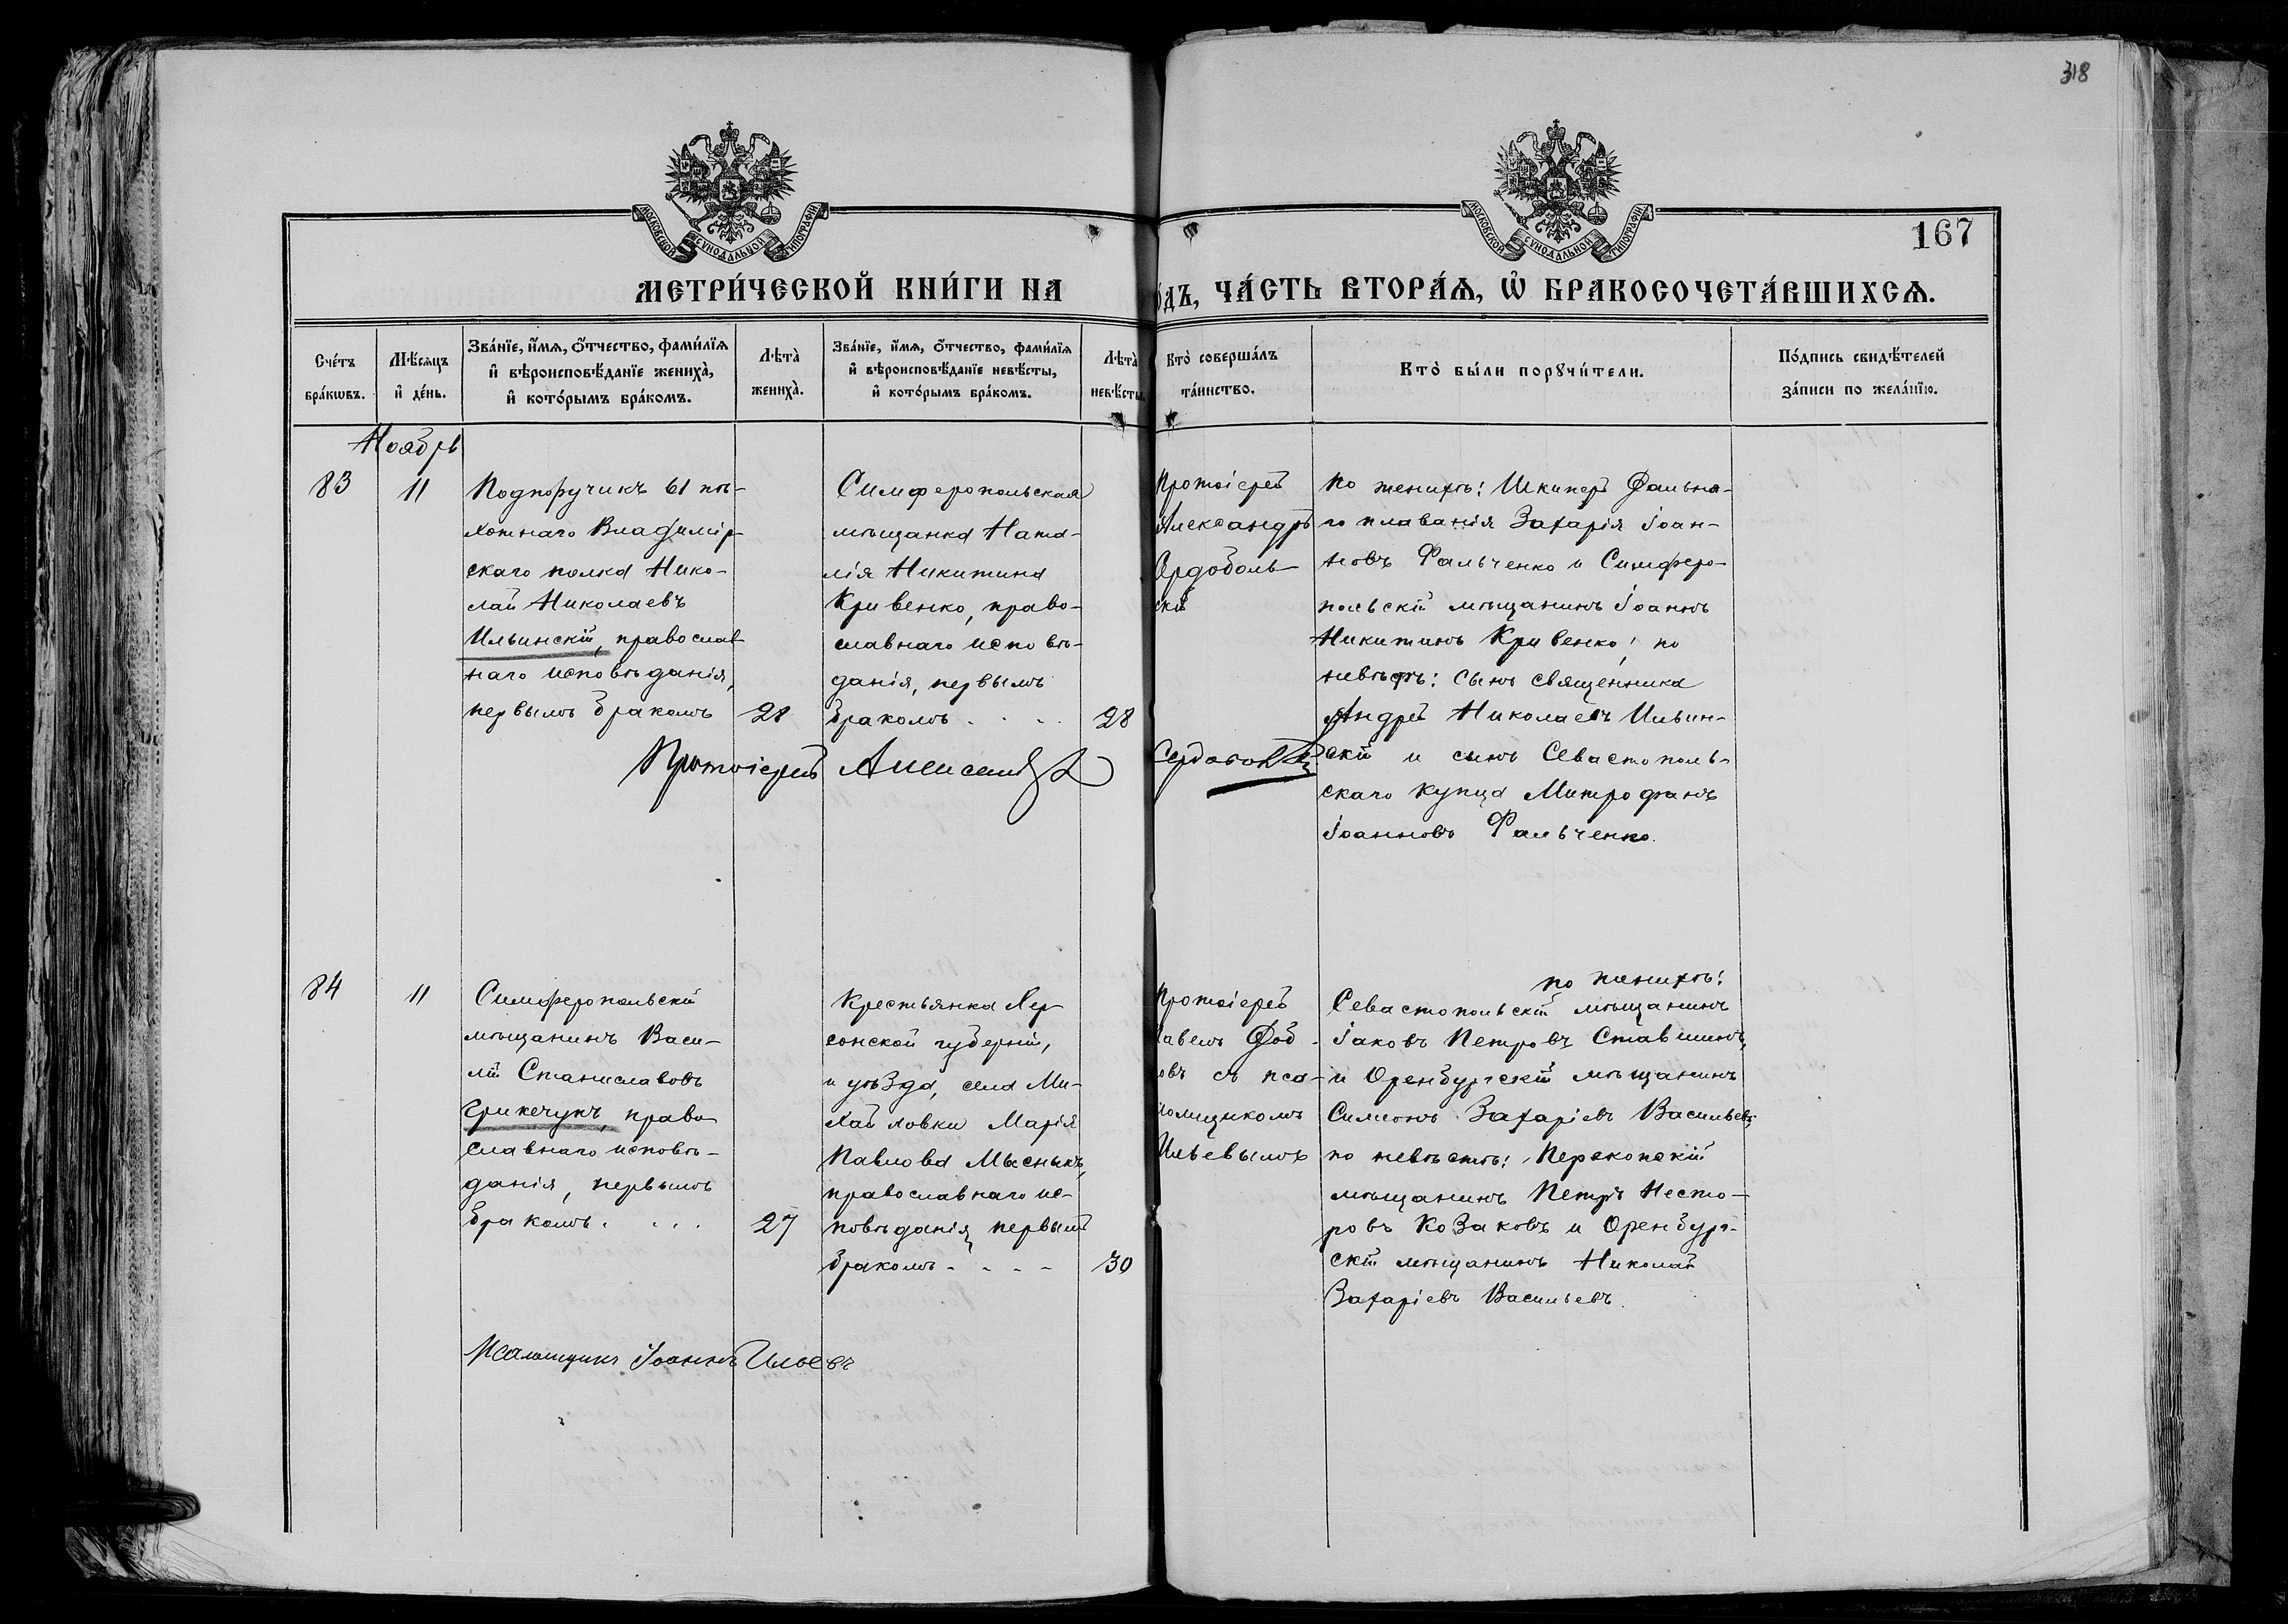 318
МОСКОВСКОЙ СѴНОДАЛЬНОЙ ТИПОГРАФІИ
МОСКОВСКОЙ СѴНОДАЛЬНОЙ ТИПОГРАФІИ
167
МЕТРИ́ЧЕСКОЙ КНИ́ГИ НА
О́ДЪ, ЧА́СТЬ ВТОРА́Ѧ, Ѡ҆ БРАКОСОЧЕТА́ВШИХСѦ.
Сче́тъ бра́кѡвъ.
Мѣ́сѧцъ и҆ де́нь.
Зва́нїе, и҆́мѧ, ѻ҆́тчество, фами́лїѧ
и҆ вѣроисповѣ́данїе жениха̀,
и҆ кото́рымъ бра́комъ.
Лѣта̀ жениха̀.
Зва́нїе, и҆́мѧ, ѻ҆́тчество, фами́лїѧ
и҆ вѣроисповѣ́данїе невѣ́сты,
и҆ кото́рымъ бра́комъ.
Лѣта̀ невѣ́сты
Кто̀ соверша́лъ
та́инство.
Кто̀ бы́ли порꙋчи́тели.
По́дпись свидѣ́телей
за́писи по жела́нїю.
Ноябрь
83
11
Подпоручикъ 61 пѣ-
хотнаго Владимір-
скаго полка Нико-
лай Николаевъ
Ильинскій, православ-
наго исповѣданія,
первымъ бракомъ
28
Симферопольская
мѣщанка Ната-
лія Никитина
Кривенко, право-
славнаго исповѣ-
данія, первымъ
бракомъ . . . .
28
Протоіерей
Александръ
Сердоболь-
скій
По женихѣ: Шкиперъ Дальня-
го плаванія Захарія Іоан-
новъ Фальченко и Симферо-
польскій мѣщанинъ Іоаннъ
Никитинъ Кривенко; по
невѣстѣ: сынъ священника
Андрей Николаевъ Ильин-
скій и сынъ Севастополь-
скаго купца Митрофанъ
Іоанновъ Фальченко.
Протоіерей Александръ
84
11
Симферопольскій
мѣщанинъ Васи-
лій Станиславовъ
право
славнаго исповѣ-
данія, первымъ
бракомъ. . . .
27
Крестьянка Хер-
сонской губерніи,
и уѣзда, села Ми-
хайловки Марія
Павлова Мысникъ,
православнаго ис-
повѣданія, первымъ
бракомъ - - - -
30
Протоіерей
авелъ Доб-
овъ съ пса-
ломщикомъ
Ильевымъ
по женихѣ:
Севастопольскій мѣщанинъ
Іаковъ Петровъ Ставшинъ,
и Оренбургскій мѣщанинъ
Симеонъ Захаріевъ Васильевъ;
по невѣстѣ: Перекопскій
мѣщанинъ Петръ Несто-
ровъ Козаковъ и Оренбург-
скій мѣщанинъ Николай
Захаріевъ Васильевъ.
Псаломщикъ Іоаннъ Ильевъ